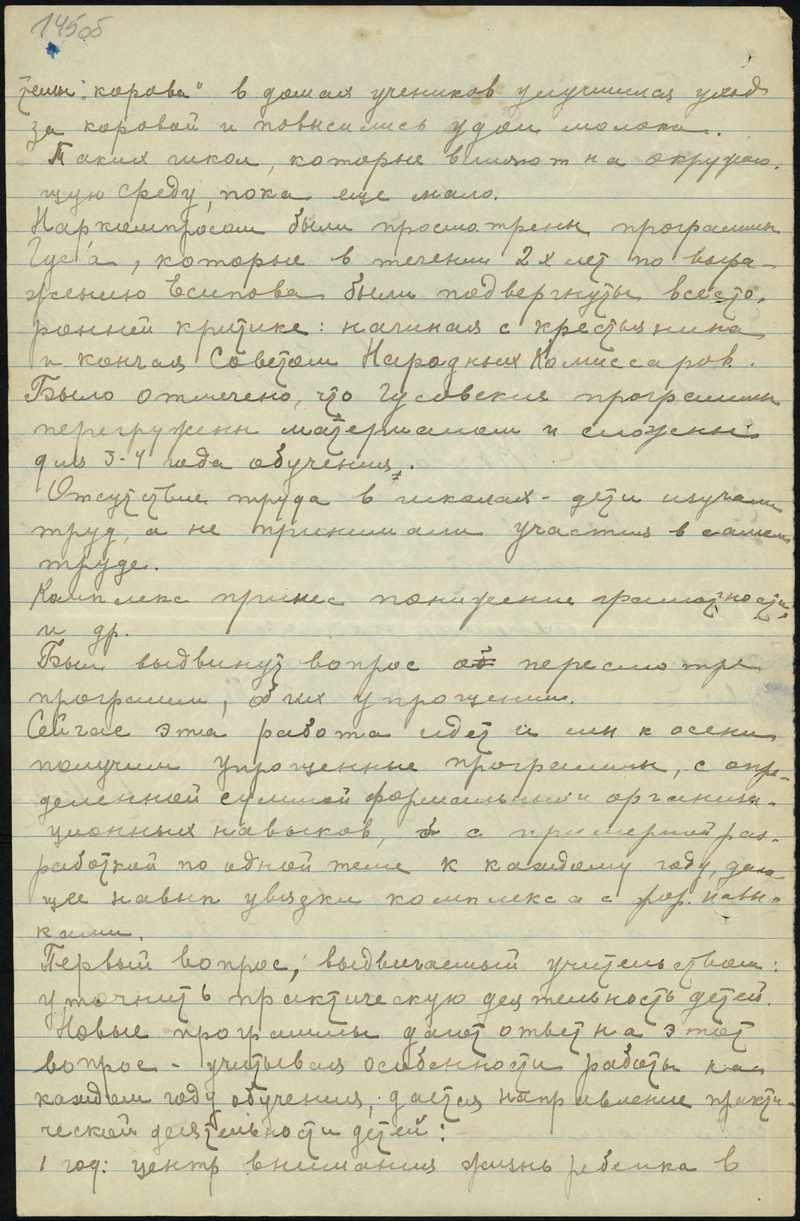 145об
темы „корова" в домах учеников улучшился уход
за коровой и повысились удои молока.
Таких школ, которые влияют на окружаю-
щую среду, пока еще мало.
Наркомпросом были просмотрены программы
Гус'а, которые в течении 2х лет по выра-
жению Есипова были подвергнуты всесто-
ронней критике: начиная с крестьянина
и кончая Советом Народных Комиссаров.
Было отмечено, что Гусовские программы
перегружены материалом и сложны
для 3-4 года обучения.
Отсутствие труда в школах - дети изучали
труд, а не принимали участия в самом
труде.
Комплекс принес понижение грамотности
и др.
Был выдвинут вопрос о пересмотре
программ, об их упрощении.
Сейчас эта работа идет и мы к осени
получим упрощенные программы, с опре-
деленной суммой формальных и организа-
ционных навыков, с примерной раз-
работкой по одной теме к каждому году, даю-
щее навык увязки комплекса с фор. навы-
ками.
Первый вопрос, выдвигаемый учительством:
уточнить практическую деятельность детей.
Новые программы дают ответ на этот
вопрос - учитывая особенности работы на
каждом году обучения, дается направление практи-
ческой деятельности детей:
1 год: центр внимания жизнь ребенка в